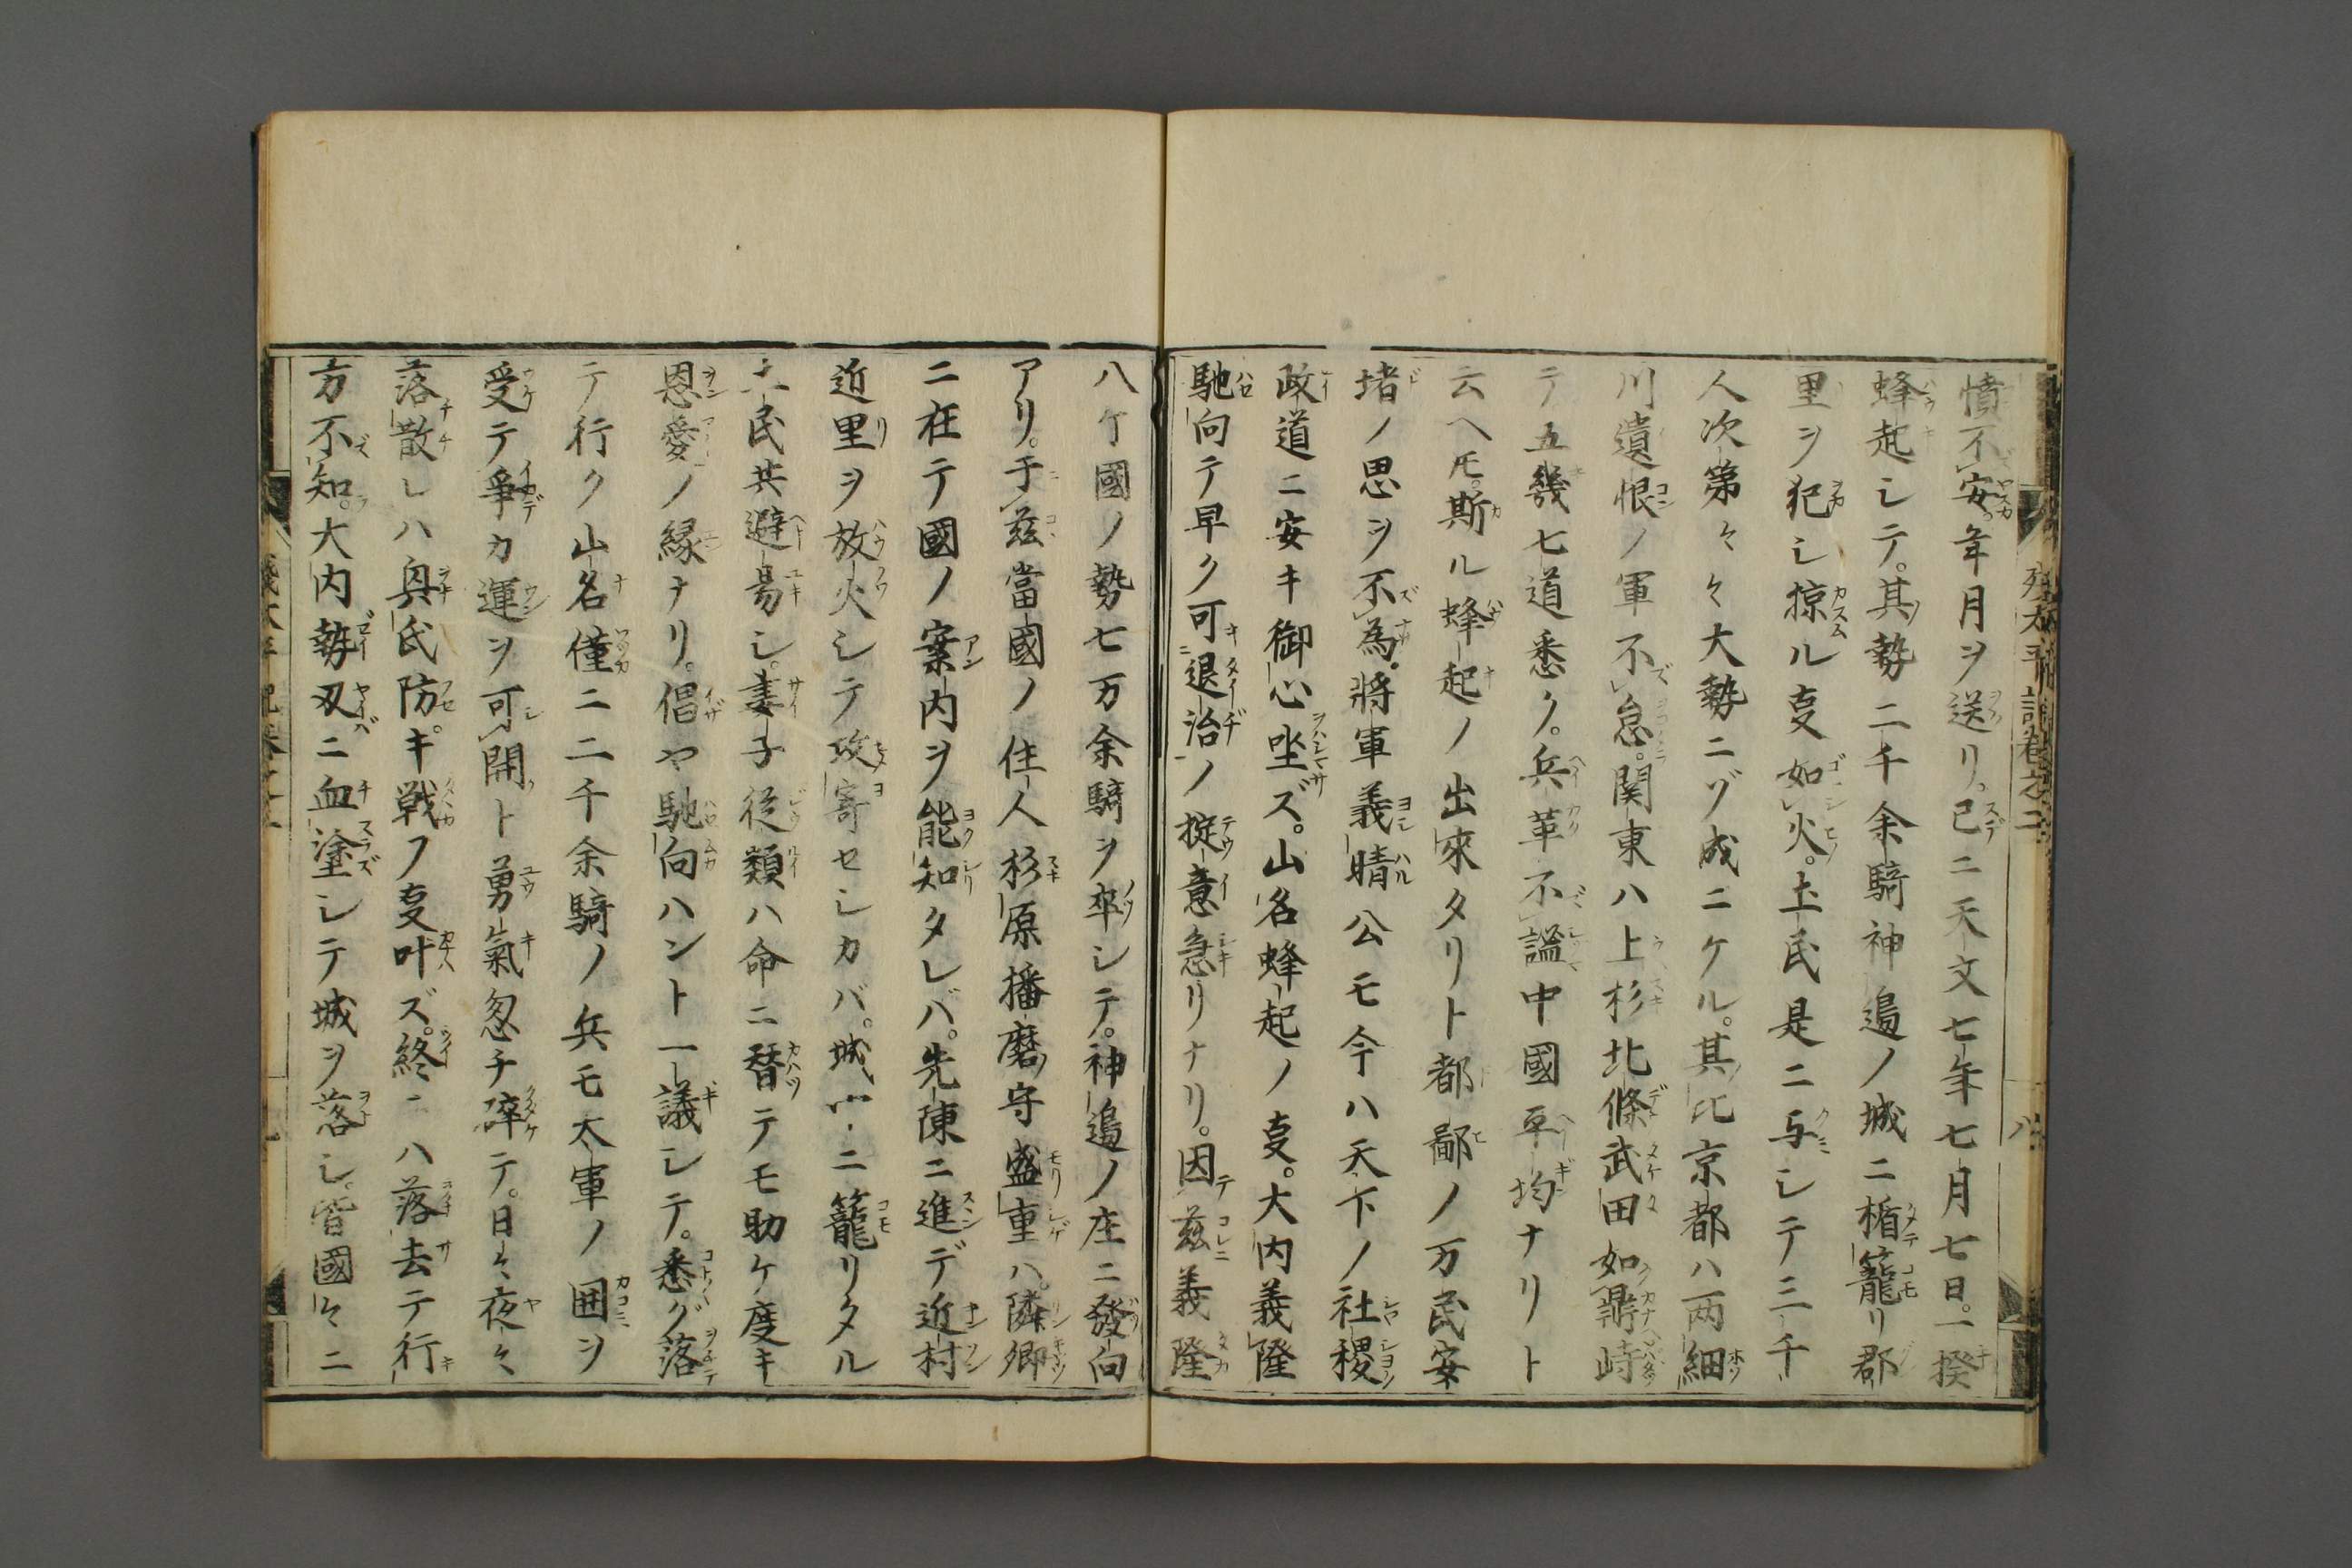 憤不安。年月ヲ送リ。已ニ天文七年七月七日。一揆
蜂起シテ。其勢二千余騎神邉ノ城ニ楯籠リ郡
里ヲ犯シ掠ル㕝如火。土民是ニ与シテ三千
人次第々々大勢ニゾ成ニケル。其比京都ハ両細
川遺恨ノ軍不怠。関東ハ上杉北條武田如鼎峙
テ五畿七道悉ク。兵革不謐中國平均ナリト
云ヘ𪜈。斯ル蜂起ノ出來タリト都鄙ノ万民安
堵ノ思ヲ不為。將軍義晴公モ今ハ天下ノ社稷
政道ニ安キ御心坐ズ。山名蜂起ノ㕝。大内義隆
馳向テ早ク可退治ノ掟意急リナリ。因茲義隆
八ケ國ノ勢七万余騎ヲ卒シテ。神邉ノ庄ニ發向
アリ。于茲當國ノ住人杉原播磨守盛重ハ。隣郷
ニ在テ國ノ案内ヲ能知タレバ。先陳ニ進デ近村
近里ヲ放火シテ攻寄セシカバ。城中ニ籠リタル
土民共避易シ。妻子従類ハ命ニ替テモ助ケ度キ
恩愛ノ縁ナリ。倡ヤ馳向ハント一議シテ。悉グ落
テ行ク山名僅ニ二千余騎ノ兵モ太軍ノ囲ヲ
受テ爭カ運ヲ可開ト勇氣忽チ碎テ。日々夜々
落散レハ與氏防キ戦フ㕝叶ズ。終ニハ落去テ行
方不知。大内勢刄ニ血塗シテ城ヲ落シ。皆國々ニ